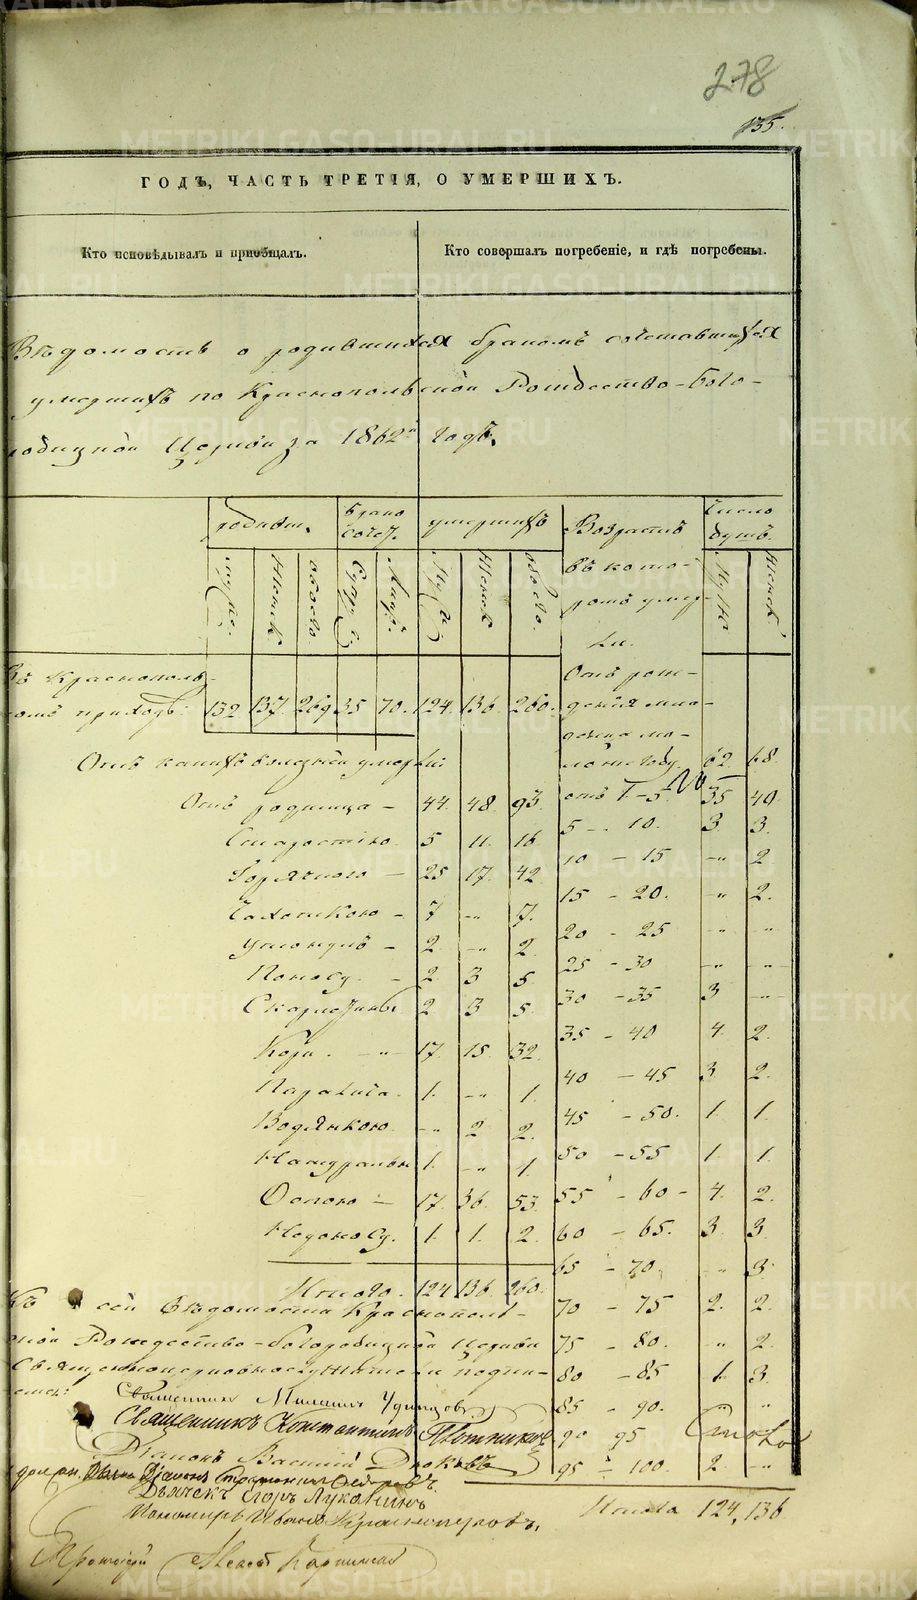 278
135.
ГОДЪ, ЧАСТЬ ТРЕТІЯ, О УМЕРШИХЪ.
Кто исповѣдывалъ и пріобщалъ.
Кто совершалъ погребеніе, и гдѣ погребены.
Вѣдомость о родившихся бракомъ сочетавшихся
умершихъ по Краснопольской Рождество-Бого-
родицкой Церкви за 1862й годъ.
родивш.
Брако сочет.
умершихъ
Возрастъ въ кото-
ромъ умер-
ли.
Число душъ.
муж.
женск.
обоего
Супр.
Лицъ
Муж.
Женск.
обоего.
Муж.
Женск.
Въ Красно поль-
скомъ приходѣ: 132 137. 269 35 70. 124. 136. 260.
Отъ рож-
денія мла-
денца мо-
ложе году. 62. 68.
Отъ какихъ болезней умерли:
Отъ родимца - 44. 48. 93. отъ 1-5. 35 40
Старостію. 5 11. 16 5 - 10. 3 3.
Горячкою - 25 17. 42 10 - 15 -„ 2
Чахоткою - 7 -„ 7. 15 - 20. -„ 2.
Утонулъ - 2 -„ 2 20 - 25 -„ -„
Поносу. - 2. 3 5 25 - 30 -„ -„
Скарлатины 2 3 5. 30 - 35 3 -„
Кори. -„- 17. 15. 32. 35 - 40 4. 2.
Паралича. 1. -„ 1. 40 - 45 3 2.
Водянкою. -„ 2 2. 45 - 50. 1. 1.
1. -„ 1. 50 - 55 1. 1.
Оспою - 17. 36. 53. 55 - 60 - 4. 2.
Недоносу. 1. 1. 2. 60 - 65. 3. 3.
65 - 70. -„ 3.
Итого. 124 136 260. 70 - 75 2. 2.
75 - 80. -„ 2.
80 - 85 1. 3.
85 - 90. -„ „
90 95
95 - 100. 2. -„
Итого 124, 136
Къ сей вѣдомости Краснополь-
ской Рождество-Богородицкой Церкви
Священноцерковнослужители подпи-
Священникъ Михаилъ Удинцовъ.
Священникъ Константинъ Плотниковъ
Діаконъ Василій
Діаконъ
Дьячекъ Егоръ Луканинъ
Пономарь Иванъ Красноперовъ.
Протоіерей Алексѣй Карпинскій
METRIKI.GASO-URAL.RU